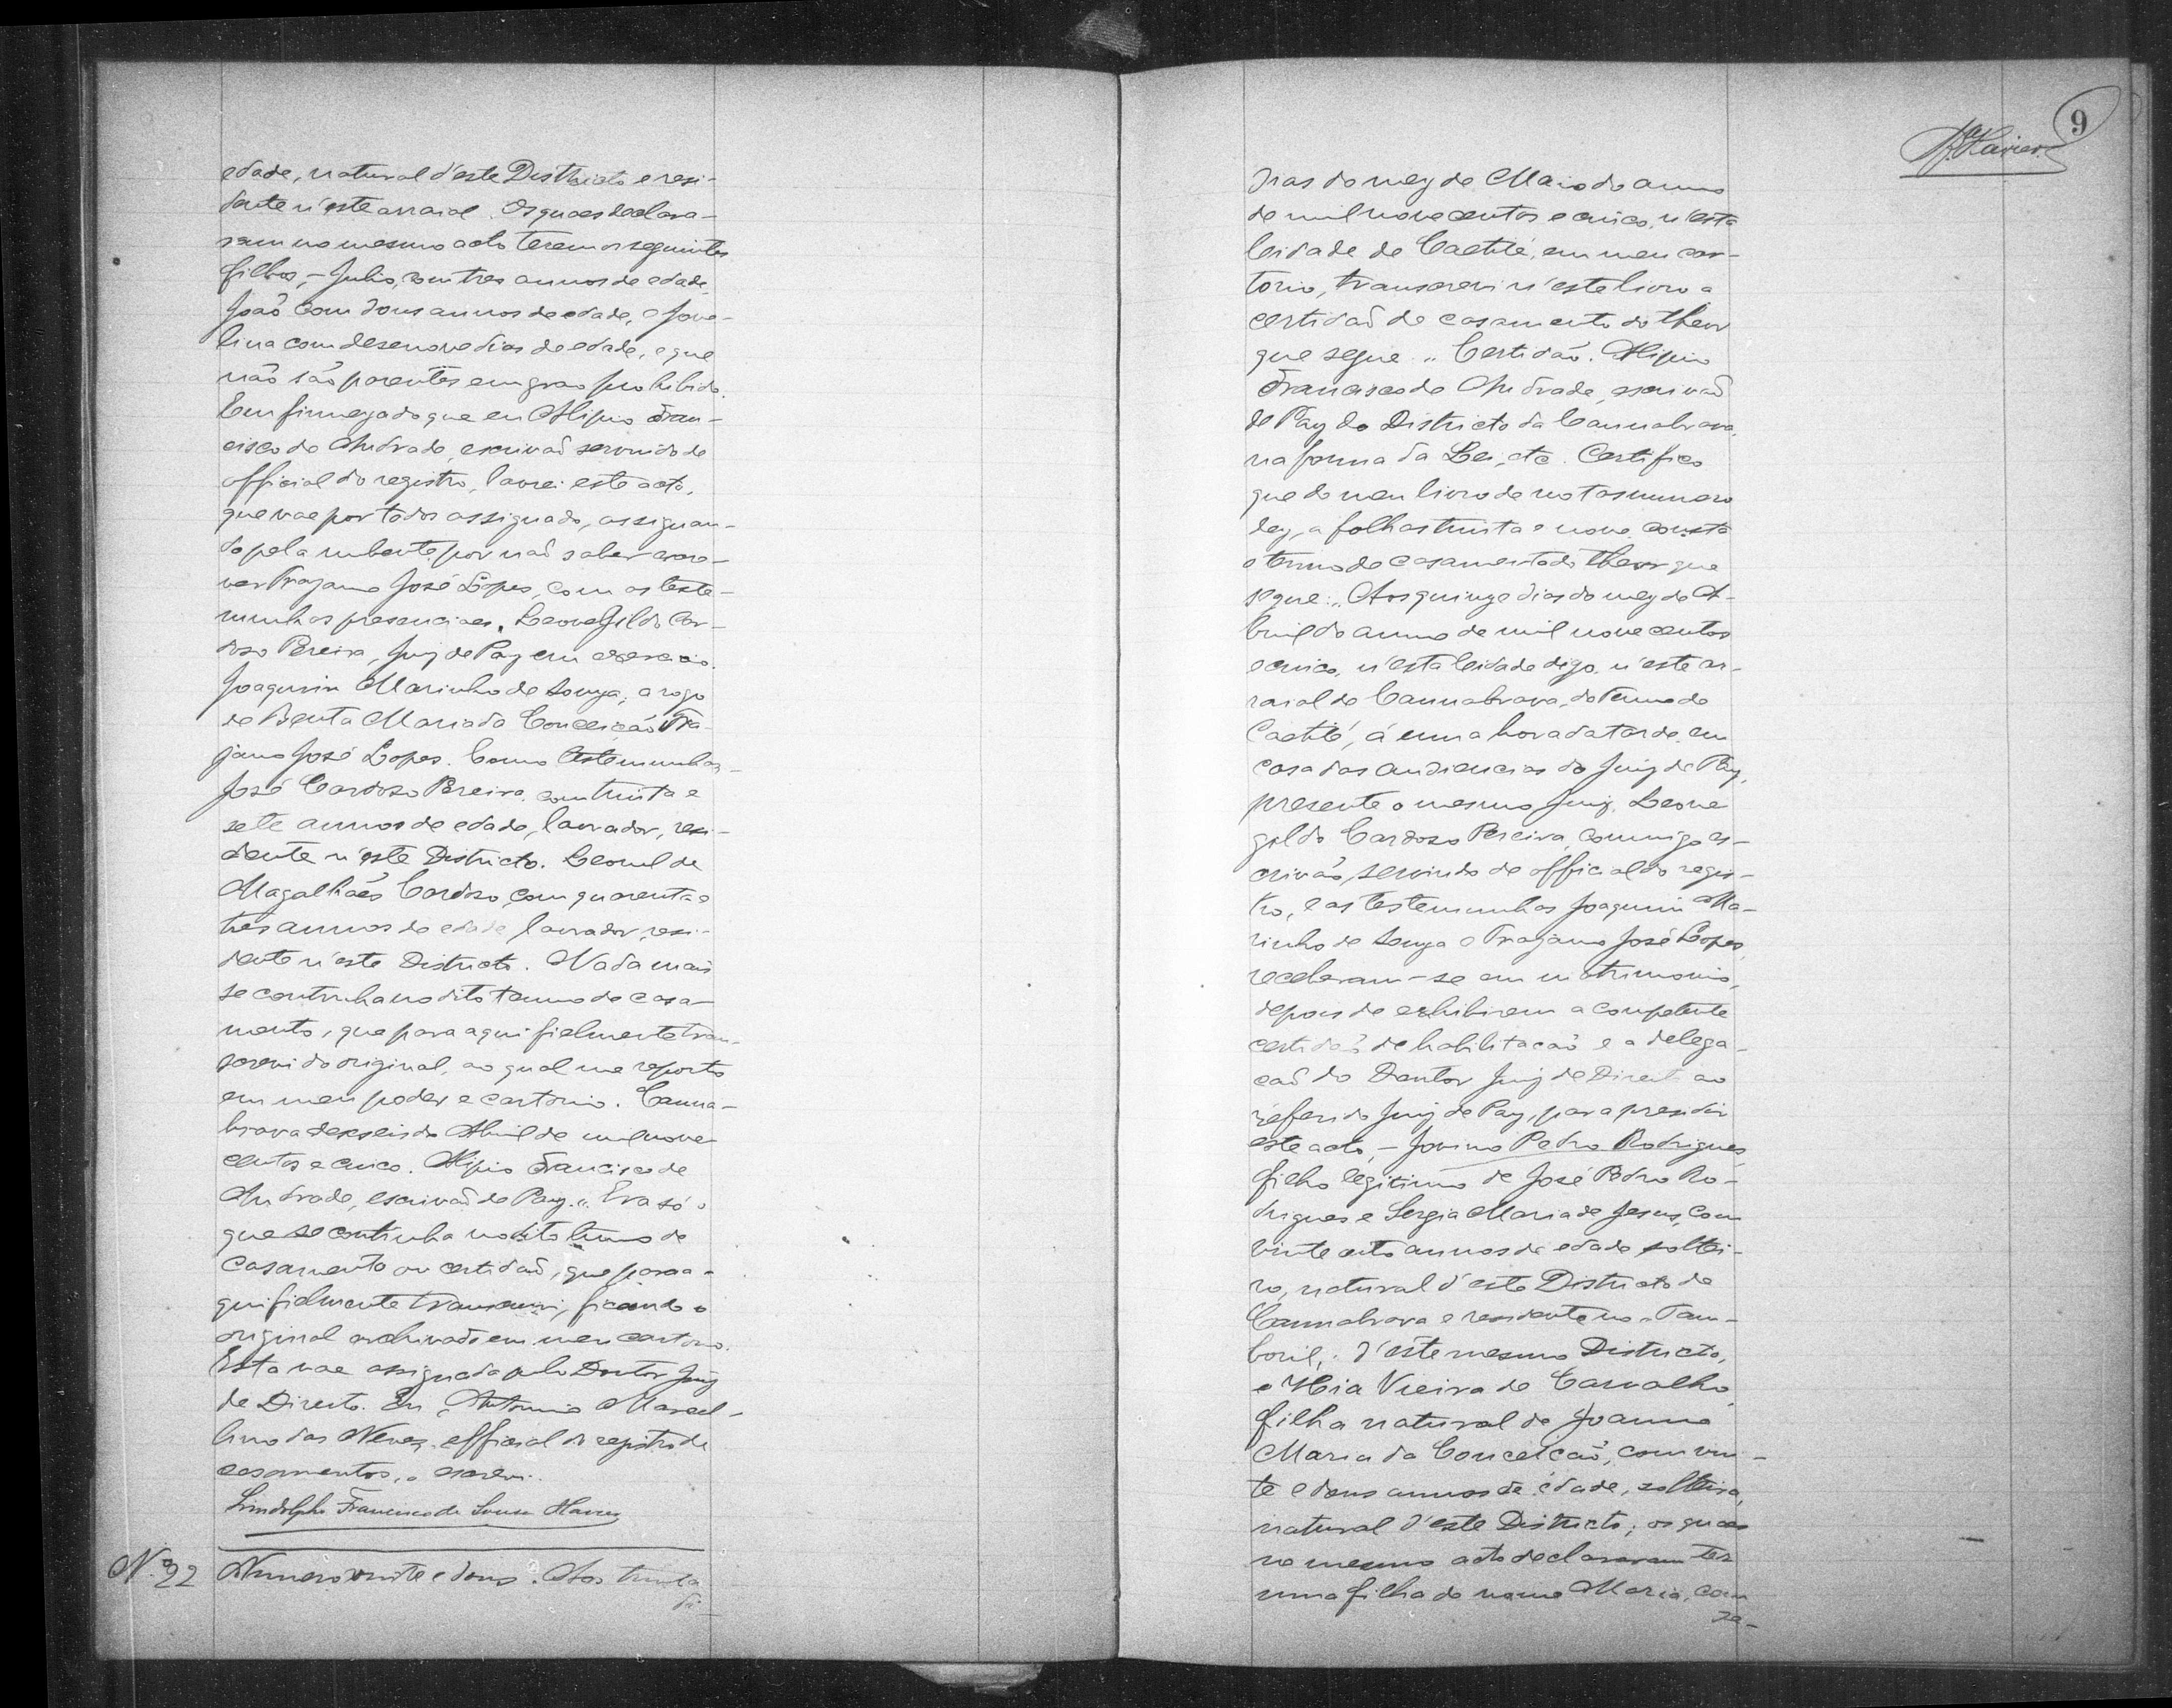 edade, natural d'este Districto e resi-
dente n'este arraial. Os quaes declara-
ram no mesmo acto terem os seguintes
filhos, - Julio, com tres annos de edade,
João com dous annos de edade, e Jove-
lina com desenove dias de edade, e que
não são parentes em grao prohibido.
Em firmeza do que eu Alipio Fran-
cisco de Andrade, escrivaõ servindo de
official do registro, lavrei este acto,
que vae por todos assignado, assignan-
do pela nubente, por naõ saber escre-
ver Trajano José Lopes, com as teste-
munhas presenciaes. Leovegildo Car-
doso Pereira, Juiz de Paz em exercicio.
Joaquim Marinho de Souza, a rogo
de Benta Maria da Conceição Tra-
jano José Lopes. Como testemunhas,
José Cardoso Pereira, com trinta e
sete annos de edade, lavrador, resi-
dente n'este Districto. Leonel de
Magalhães Cardoso, com quarenta e
tres annos de edade lavrador, resi-
dente n'este Districto. Nada mais
se continha no dito termo de casa-
mento, que para aqui fielmente tran-
screvi do original, ao qual me reporto
em meu poder e cartorio. Canna-
brava deseseis de Abril de mil nove
centos e cinco. Alipio Francisco de
Andrade, escrivaõ de Paz.,, Era só o
que se continha no dito termo de
casamento ou certidaõ, que para a-
qui fielmente transcrevi, ficando o
original archivado em meu cartorio.
Esta vae assignada pelo Doutor Juiz
de Direito. Eu, Antonio Marcel-
lino das Neves, official do registro de
casamentos, o escrevi.
Lindolpho Francisco de Sousa
N.º 22 Numero vinte e dous. Aos trinta
di-
9
Xavier
dias do mez de Maio do anno
de mil nove centos e cinco, n'esta
Cidade de Caetité, em meu car-
torio, transcrevi n'este livro a
certidaõ de casamento do theor
que segue. ,, Certidaõ. Alipio
Francisco de Andrade, escrivaõ
de Paz do Districto da Cannabrava,
na forma da Lei, etc. Certifico
que do meu livro de notas numero
dez, a folhas trinta e nove, consta
o termo de casamento do theor que
segue: ,, Aos quinze dias do mez de A-
bril do anno de mil nove centos
e cinco, n'esta Cidade digo, n'este ar-
raial de Cannabrava, do Termo de
Caetité, á uma hora da tarde, em
casa das audiencias do Juiz de Paz,
presente o mesmo Juiz, Leove
gildo Cardoso Pereira, commigo es-
crivaõ, servindo de official do regis-
tro, e as testemunhas Joaquim Ma-
rinho de Souza e Trajano José Lopes,
receberam-se em matrimonio,
depois de exhibirem a competente
certidaõ de habilitaçaõ e a delega-
çaõ do Doutor Juiz de Direito ao
referido Juiz de Paz, para presidir
este acto, - Jovino Pedro Rodrigues,
filho legitimo de José Pedro Ro-
drigues e Sergia Maria de Jesus, com
vinte oito annos de edade, soltei-
ro, natural d'este Districto de
Cannabrava e residente no ,,Tam-
boril,, d'este mesmo Districto,
e Vieira de Carvalho,
filha natural de Joanna
Maria da Conceicaõ, com vin-
te e dous annos de edade, solteira,
natural d'este Districto; os quaes
no mesmo acto declararam ter
uma filha de nome Maria, com